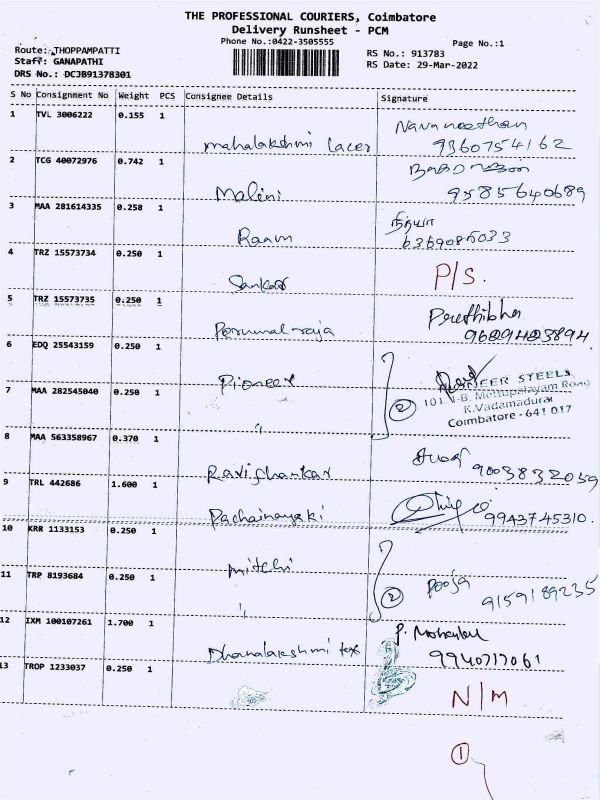 THE PROFESSIONAL COURIERS, Coimbatore
Delivery Runsheet - PCM
Phone No.:0422-3505555
Page No.:1
Route: THOPPAMPATTI
Staff: GANAPATHI
DRS No.: DCJB91378301
RS No.: 913783
RS Date: 29-Mar-2022
S No Consignment No Weight PCS Consignee Details Signature
1 TVL 3006222 0.155 1 mahalakshmi Laces Navaneethan
9360754162
2 TCG 40072976 0.742 1 Malini
9585640689
3 MAA 281614335 0.258 1 Raam நித்யா
6369085033
4 TRZ 15573734 0.250 1 Sankar P/S.
5 TRZ 15573735 0.250 1 Perumal raja Preethibha
9629423894.
6 EDQ 25543159 0.250 1 Pioneer
PIONEER STEELS
7 MAA 282545040 0.250 1 " 2
101, 1-B, Mettupalayam Road
K.Vadamadurai
Coimbatore - 641 017
8 MAA 563358967 0.370 1 Ravishankar
9003832059
9 TRL 442686 1.600 1 Pachainayaki
9943745310.
10 KRR 1133153 0.250 1 mitchi
11 TRP 8193684 0.250 1 " 2 Pooja
9159189235
12 IXM 100107261 1.700 1 Dhanalakshmi tex
9940717061
13 TROP 1233037 0.250 1 N/M
1